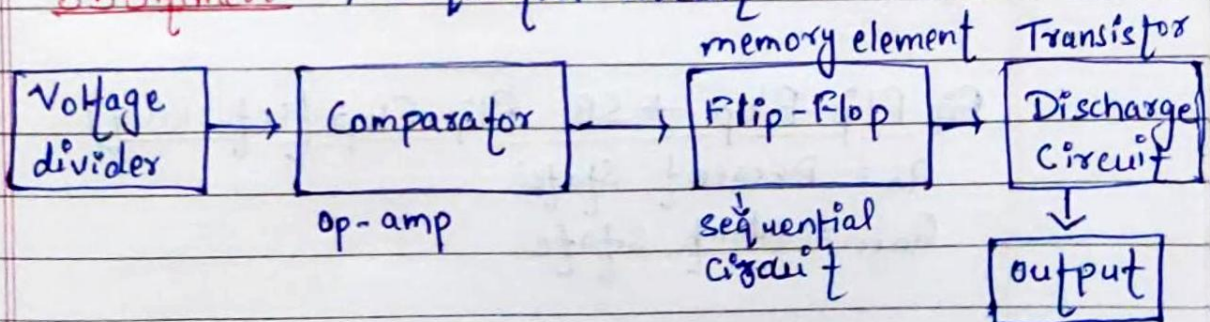 memory element Transistor
Voltage divider
Comparator
Flip-Flop
Discharge Circuit
op-amp
sequential circuit
output